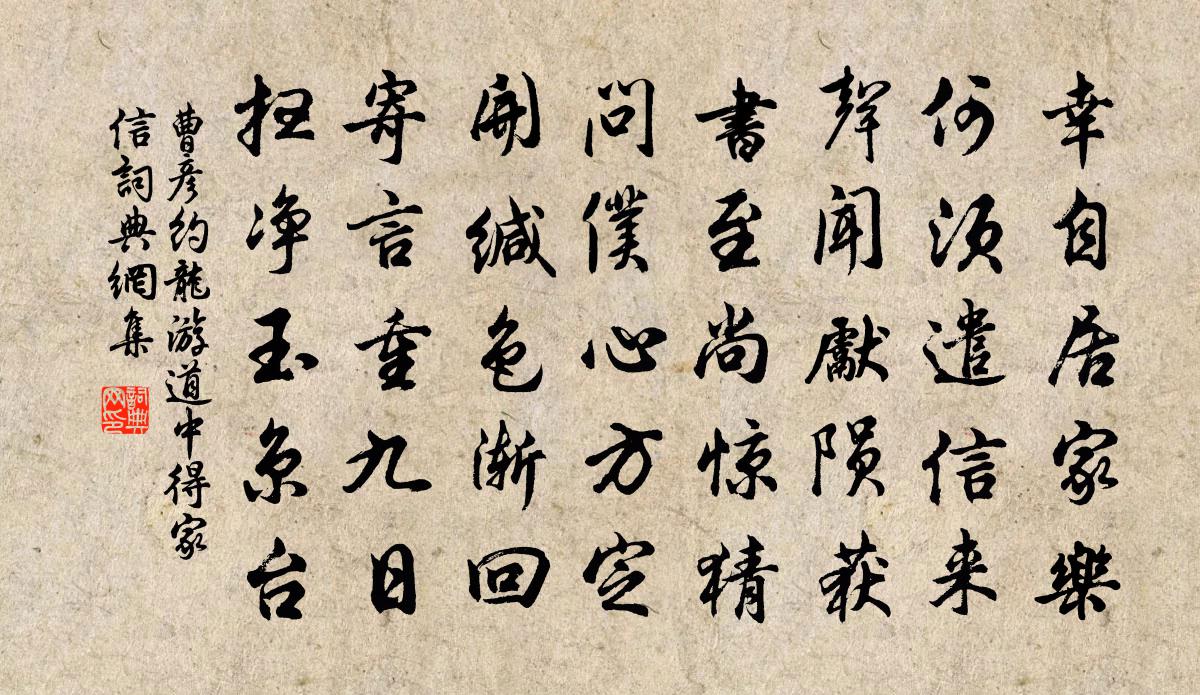 幸自居家樂
何須遣信来
聲聞獻陨获
書至尚惊猜
問僕心方定
開緘色渐回
寄言重九日
扫净玉京台
曹彦約龍游道中得家
信詞典網集
詞典网印